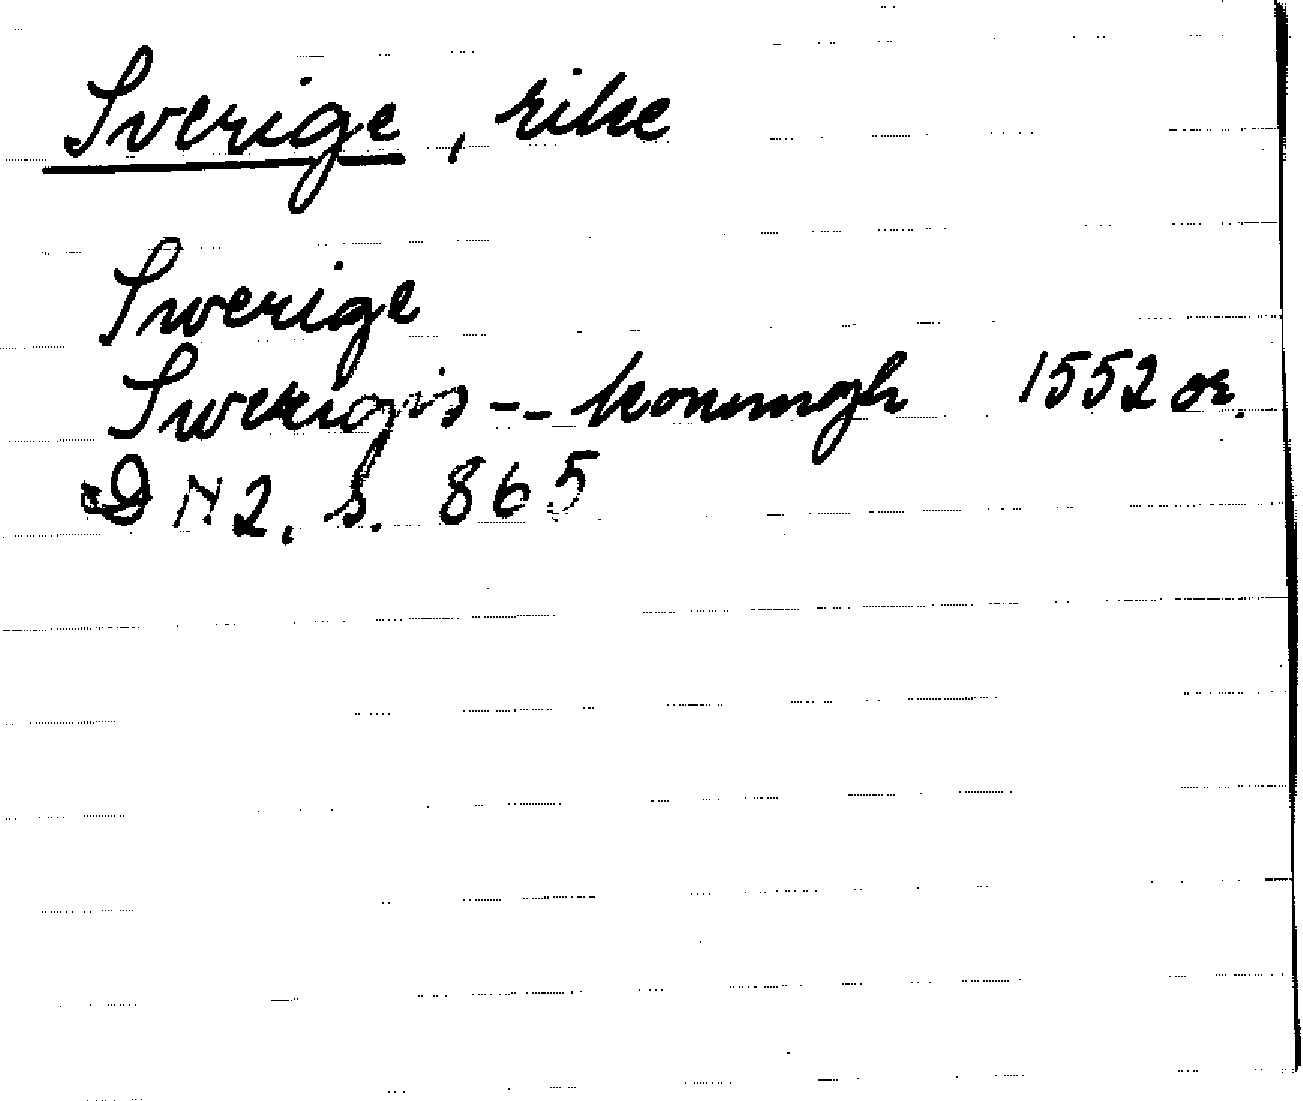 Sverige, rike
Swerige
Swerigis -- konungh 1552 or.
DN 2, s. 865